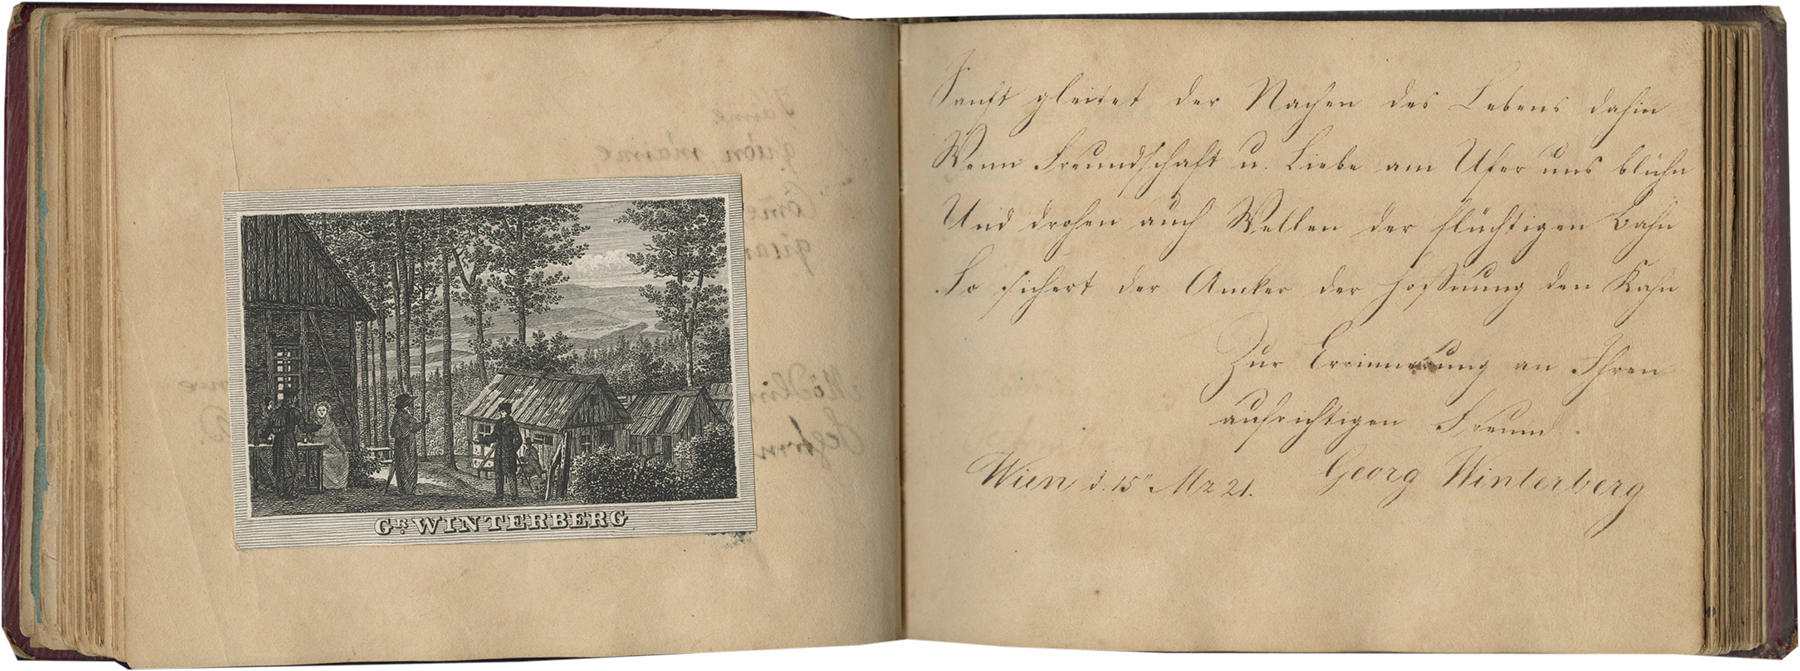 Gr. WINTERBERG
J'aime
qu'on m'aime
Come
quan
Mödlin
Sanft gleitet der Nachen des Lebens dahin
Wenn Freundschaft u. Liebe am Ufer uns blühn
Und drohen auch Wellen der flüchtigen Bahn
So sichert der Ancker der Hoffnung den Kahn
Zur Errinnerung an Ihren
aufrichtigen Freund.
Wien d. 15" Mz 21. Georg Winterberg